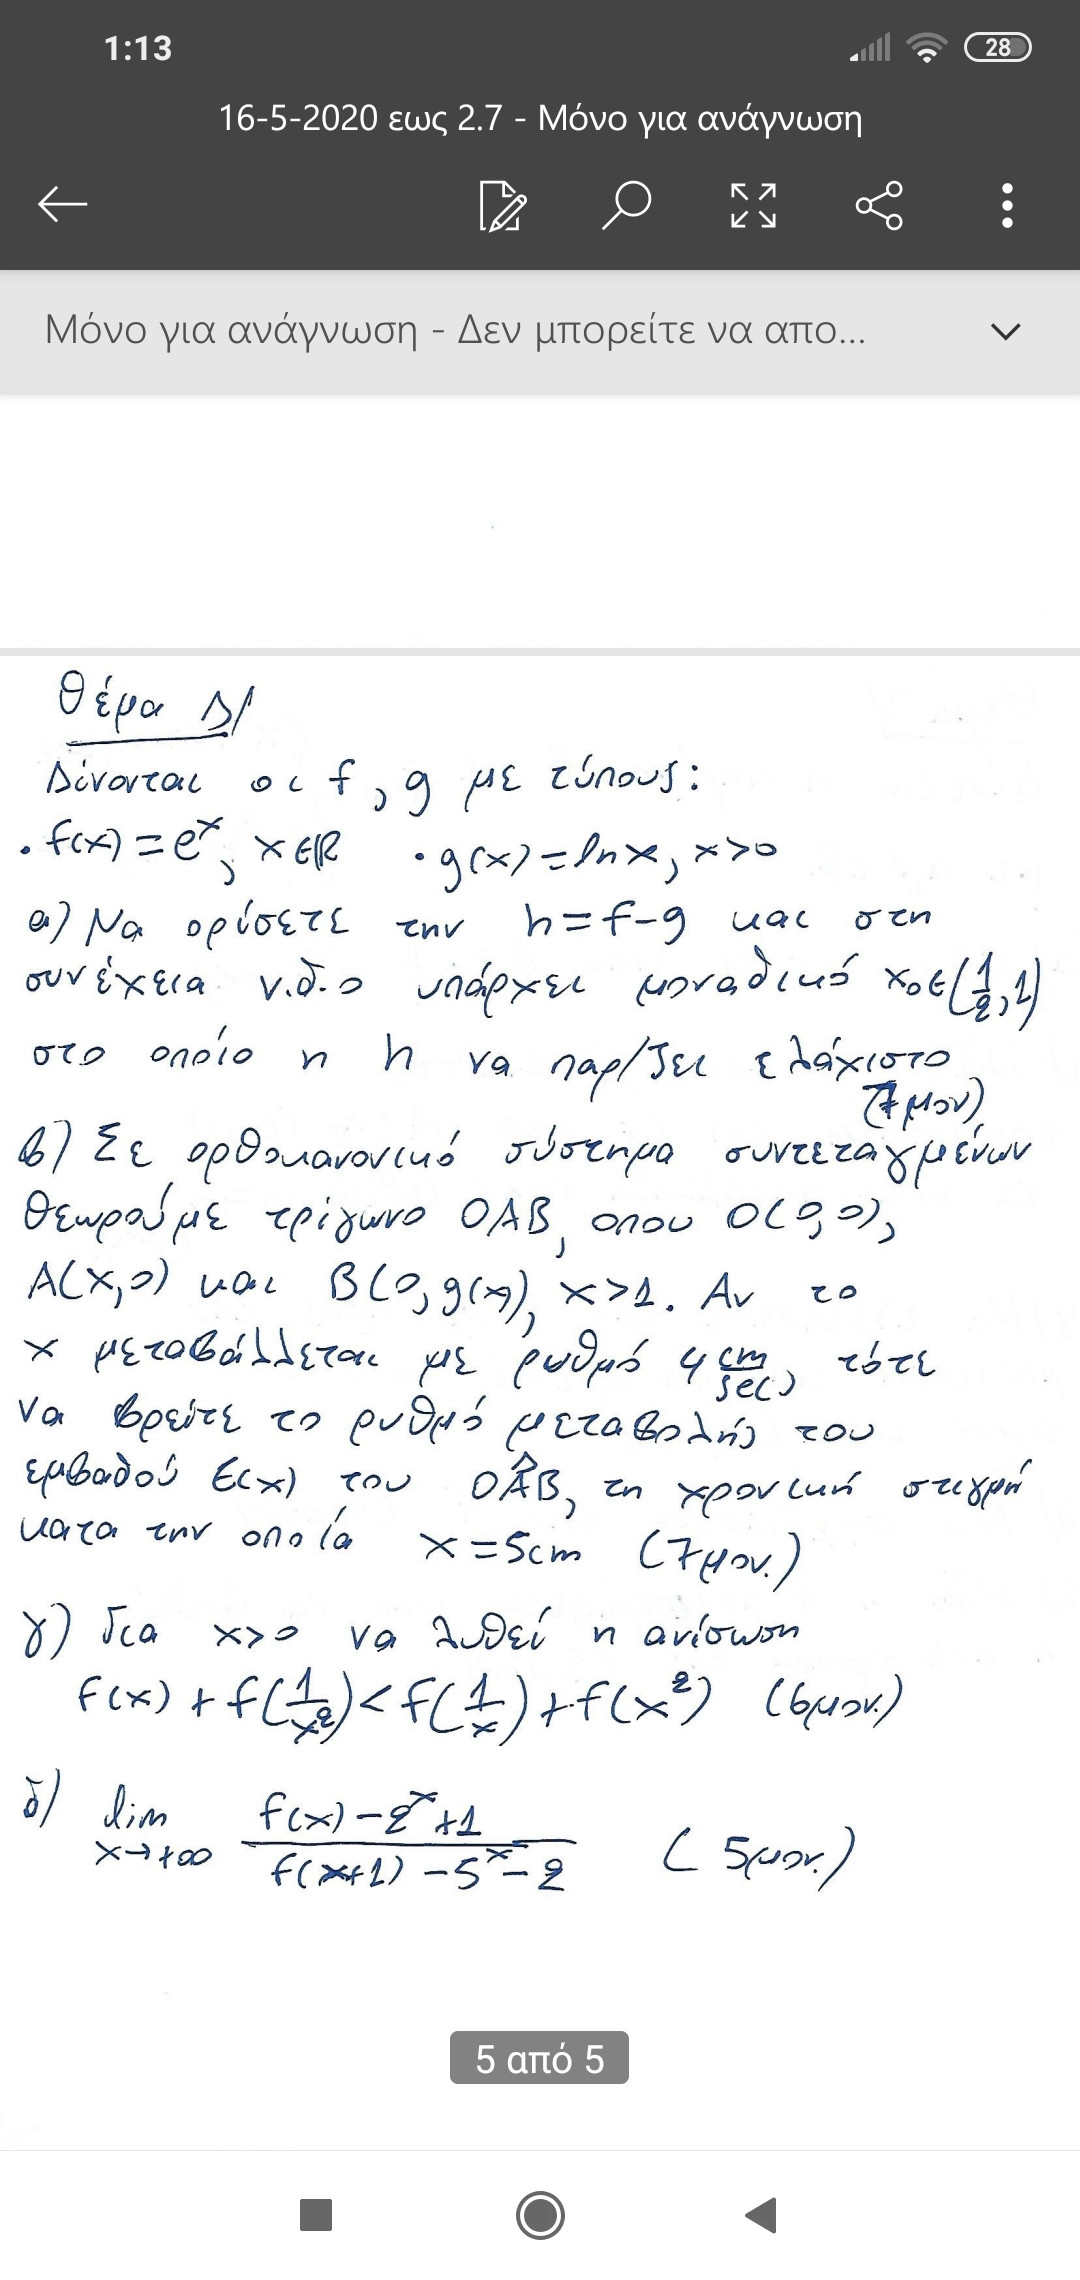 1:13
28
16-5-2020 εως 2.7 - Μόνο για ανάγνωση
Μόνο για ανάγνωση - Δεν μπορείτε να απο...
Θέμα Δ/
Δίνονται οι f, g με τύπους:
• f(x) = e^x, x∈ℝ • g(x) = ln x, x>0
α) Να ορίσετε την h = f-g και στη
συνέχεια ν.δ.ο υπάρχει μοναδικό x₀∈(1/2, 1)
στο οποίο η h να παρ/ζει ελάχιστο
(7 μον)
β) Σε ορθοκανονικό σύστημα συντεταγμένων
θεωρούμε τρίγωνο ΟΑΒ, οπου Ο(0,0),
Α(x,0) και Β(0, g(x)), x>1. Αν το
x μεταβάλλεται με ρυθμό 4 cm/sec, τότε
να βρείτε το ρυθμό μεταβολής του
εμβαδού Ε(x) του ΟΑ̂Β, τη χρονική στιγμή
κατα την οποία x = 5cm (7μον.)
γ) Για x>0 να λυθεί η ανίσωση
f(x) + f(1/x²) < f(1/x) + f(x²) (6μον.)
δ) lim x→+∞ (f(x) - 2^x + 1)/(f(x+1) - 5^x - 2) (5μον.)
5 από 5